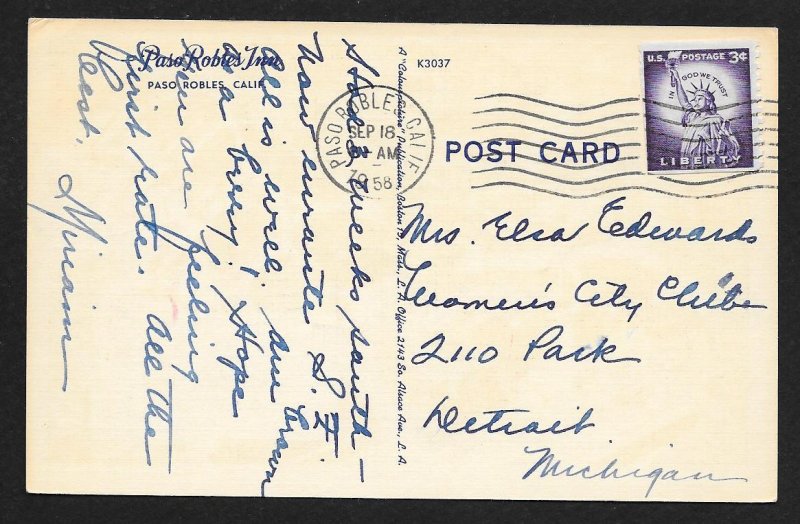 Paso Robles Inn
PASO ROBLES, CALIF.
K3037
U.S. POSTAGE 3¢
IN GOD WE TRUST
LIBERTY
PASO ROBLES, CALIF.
SEP 18
AM
1958
POST CARD
A "Colourpicture" Publication, Boston 15, Mass., L. A. Office 2143 So. Alsace Ave., L. A.
Mrs. Elsa Edwards
Women's City Club
2110 Park
Detroit
Michigan
weeks south —
Now enroute S. F.
All is well. Am brown
as a berry! Hope
you are feeling
first rate. All the
best,
Miriam